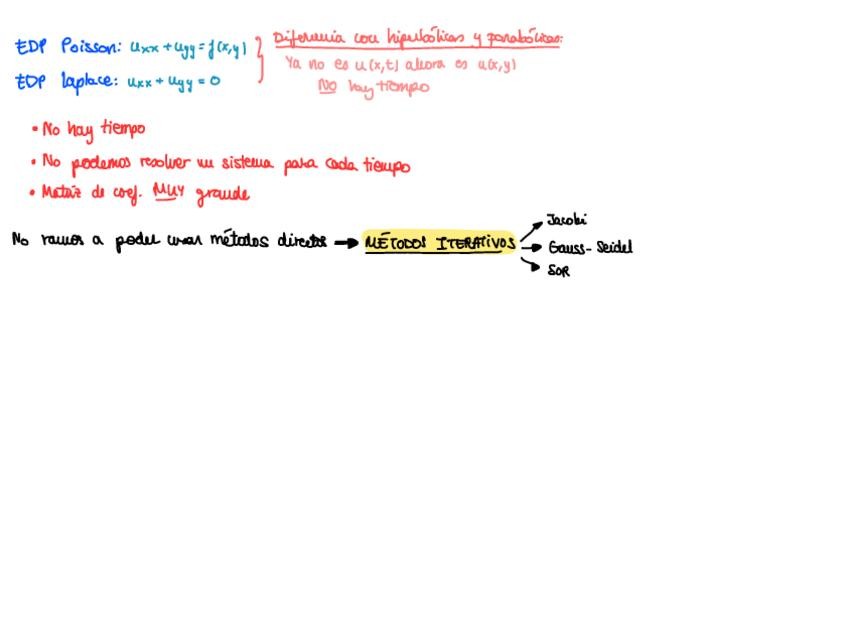 EDP Poisson: uxx + uyy = f(x,y)
EDP Laplace: uxx + uyy = 0
Diferencia con hiperbólicas y parabólicas:
Ya no es u(x,t) ahora es u(x,y)
NO hay tiempo
• No hay tiempo
• No podemos resolver un sistema para cada tiempo
• Matriz de coef. MUY grande
No vamos a poder usar métodos directos → MÉTODOS ITERATIVOS
Jacobi
Gauss-Seidel
SOR